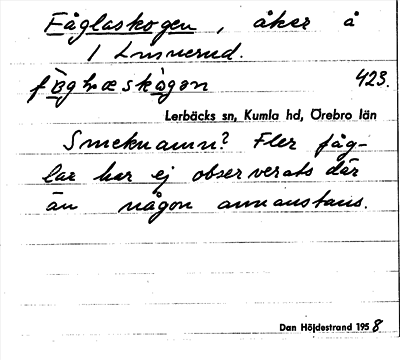 Fåglaskogen, åker å
1 Lunnerud.
fåglaskågan 423.
Lerbäcks sn, Kumla hd, Örebro län
Smeknamn? Fler fåg-
lar har ej observerats där
än någon annanstans.
Dan Höjdestrand 1958